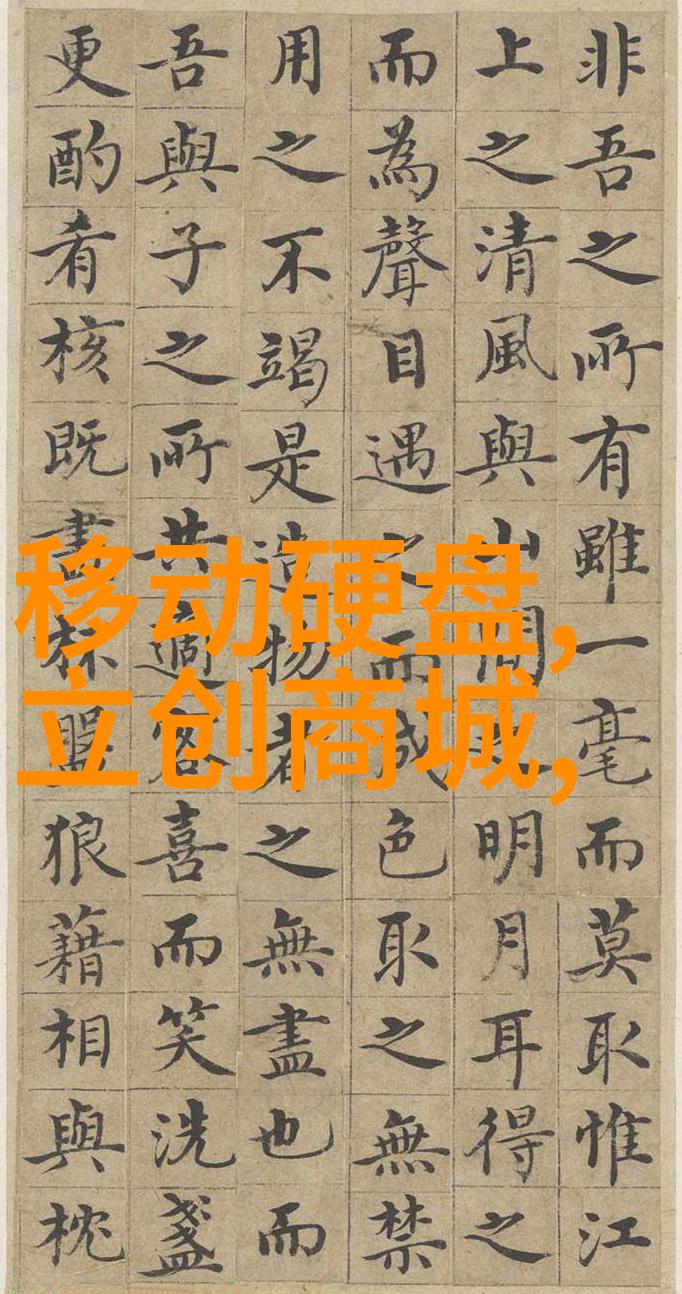 非吾之所有雖一毫而莫取惟江
上之清風與山間之明月耳得之
而為聲目遇之而成色取之無禁
用之不竭是造物者之無盡也而
吾與子之所共適客喜而笑洗盞
更酌肴核既盡杯盤狼藉相與枕
移动硬盘,
立创商城,